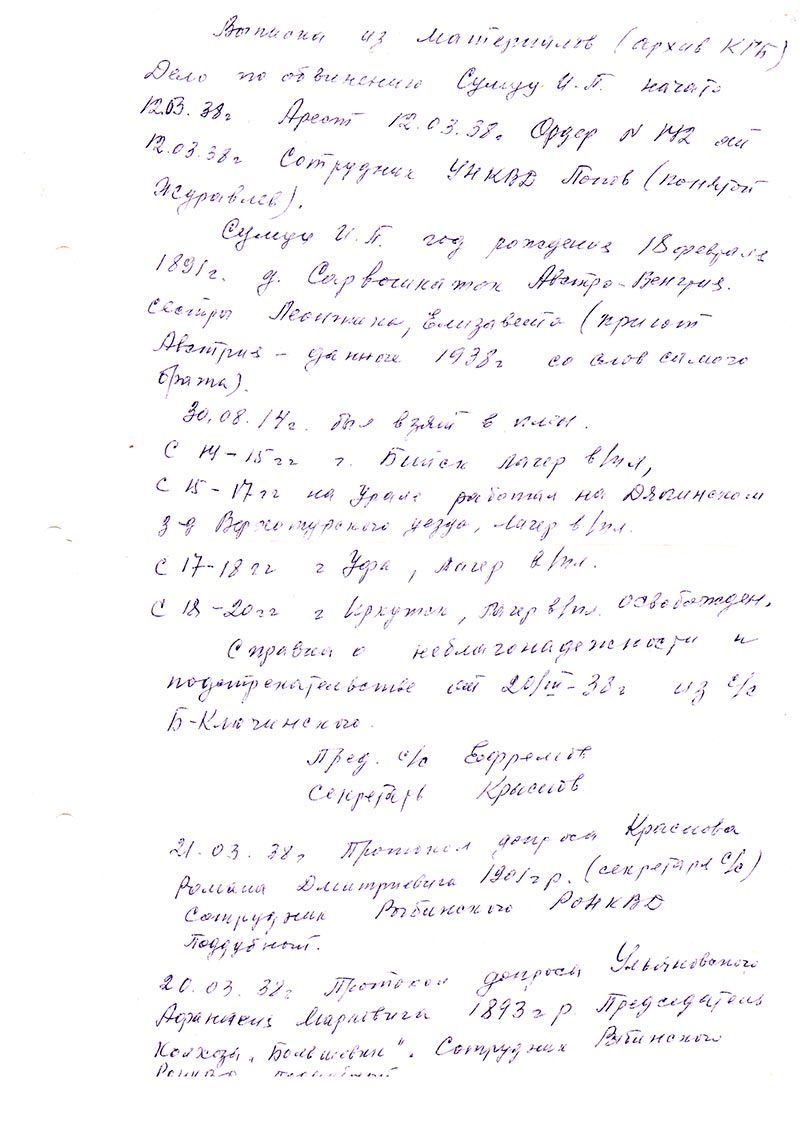 Выписка из материалов (архив КГБ)
Дело по обвинению Сумцу И.П. начато
12.03.38г. Арест 12.03.38г Ордер N 142 от
12.03.38г Сотрудник УНКВД Попов (понятой
Журавлев).
Сумцу И.П. год рождения 18 февраля
1891г. д. Австро-Венгрия.
сестры Леонтина, Елизавета (приют
Австрия – данное 1938г со слов самого
брата).
30.08.14г. был взят в плен.
С 14-15гг г. Бийск лагер в/пл,
С 15-17гг на Урале работал на
з-д Верхотурского уезда, лагер в/пл.
С 17-18гг г Уфа, лагер в/пл.
С 18-20гг г Иркутск, лагер в/пл. освобожден.
Справка о неблагонадежности и
подстрекательстве от 20/III-38г из с/с
Б-Ключинского.
Пред. с/с Ефремов
Секретарь Краснов
21.03.38г Протокол допроса Краснова
Романа Дмитриевича 1901г р. (секретаря с/с)
Сотрудник Рыбинского РОНКВД
Поддубный.
20.03.38г Протокол допроса Ульяновского
Афанасия Марковича 1893г р. Председатель
Колхозы „Большовик". Сотрудник Рыбинского